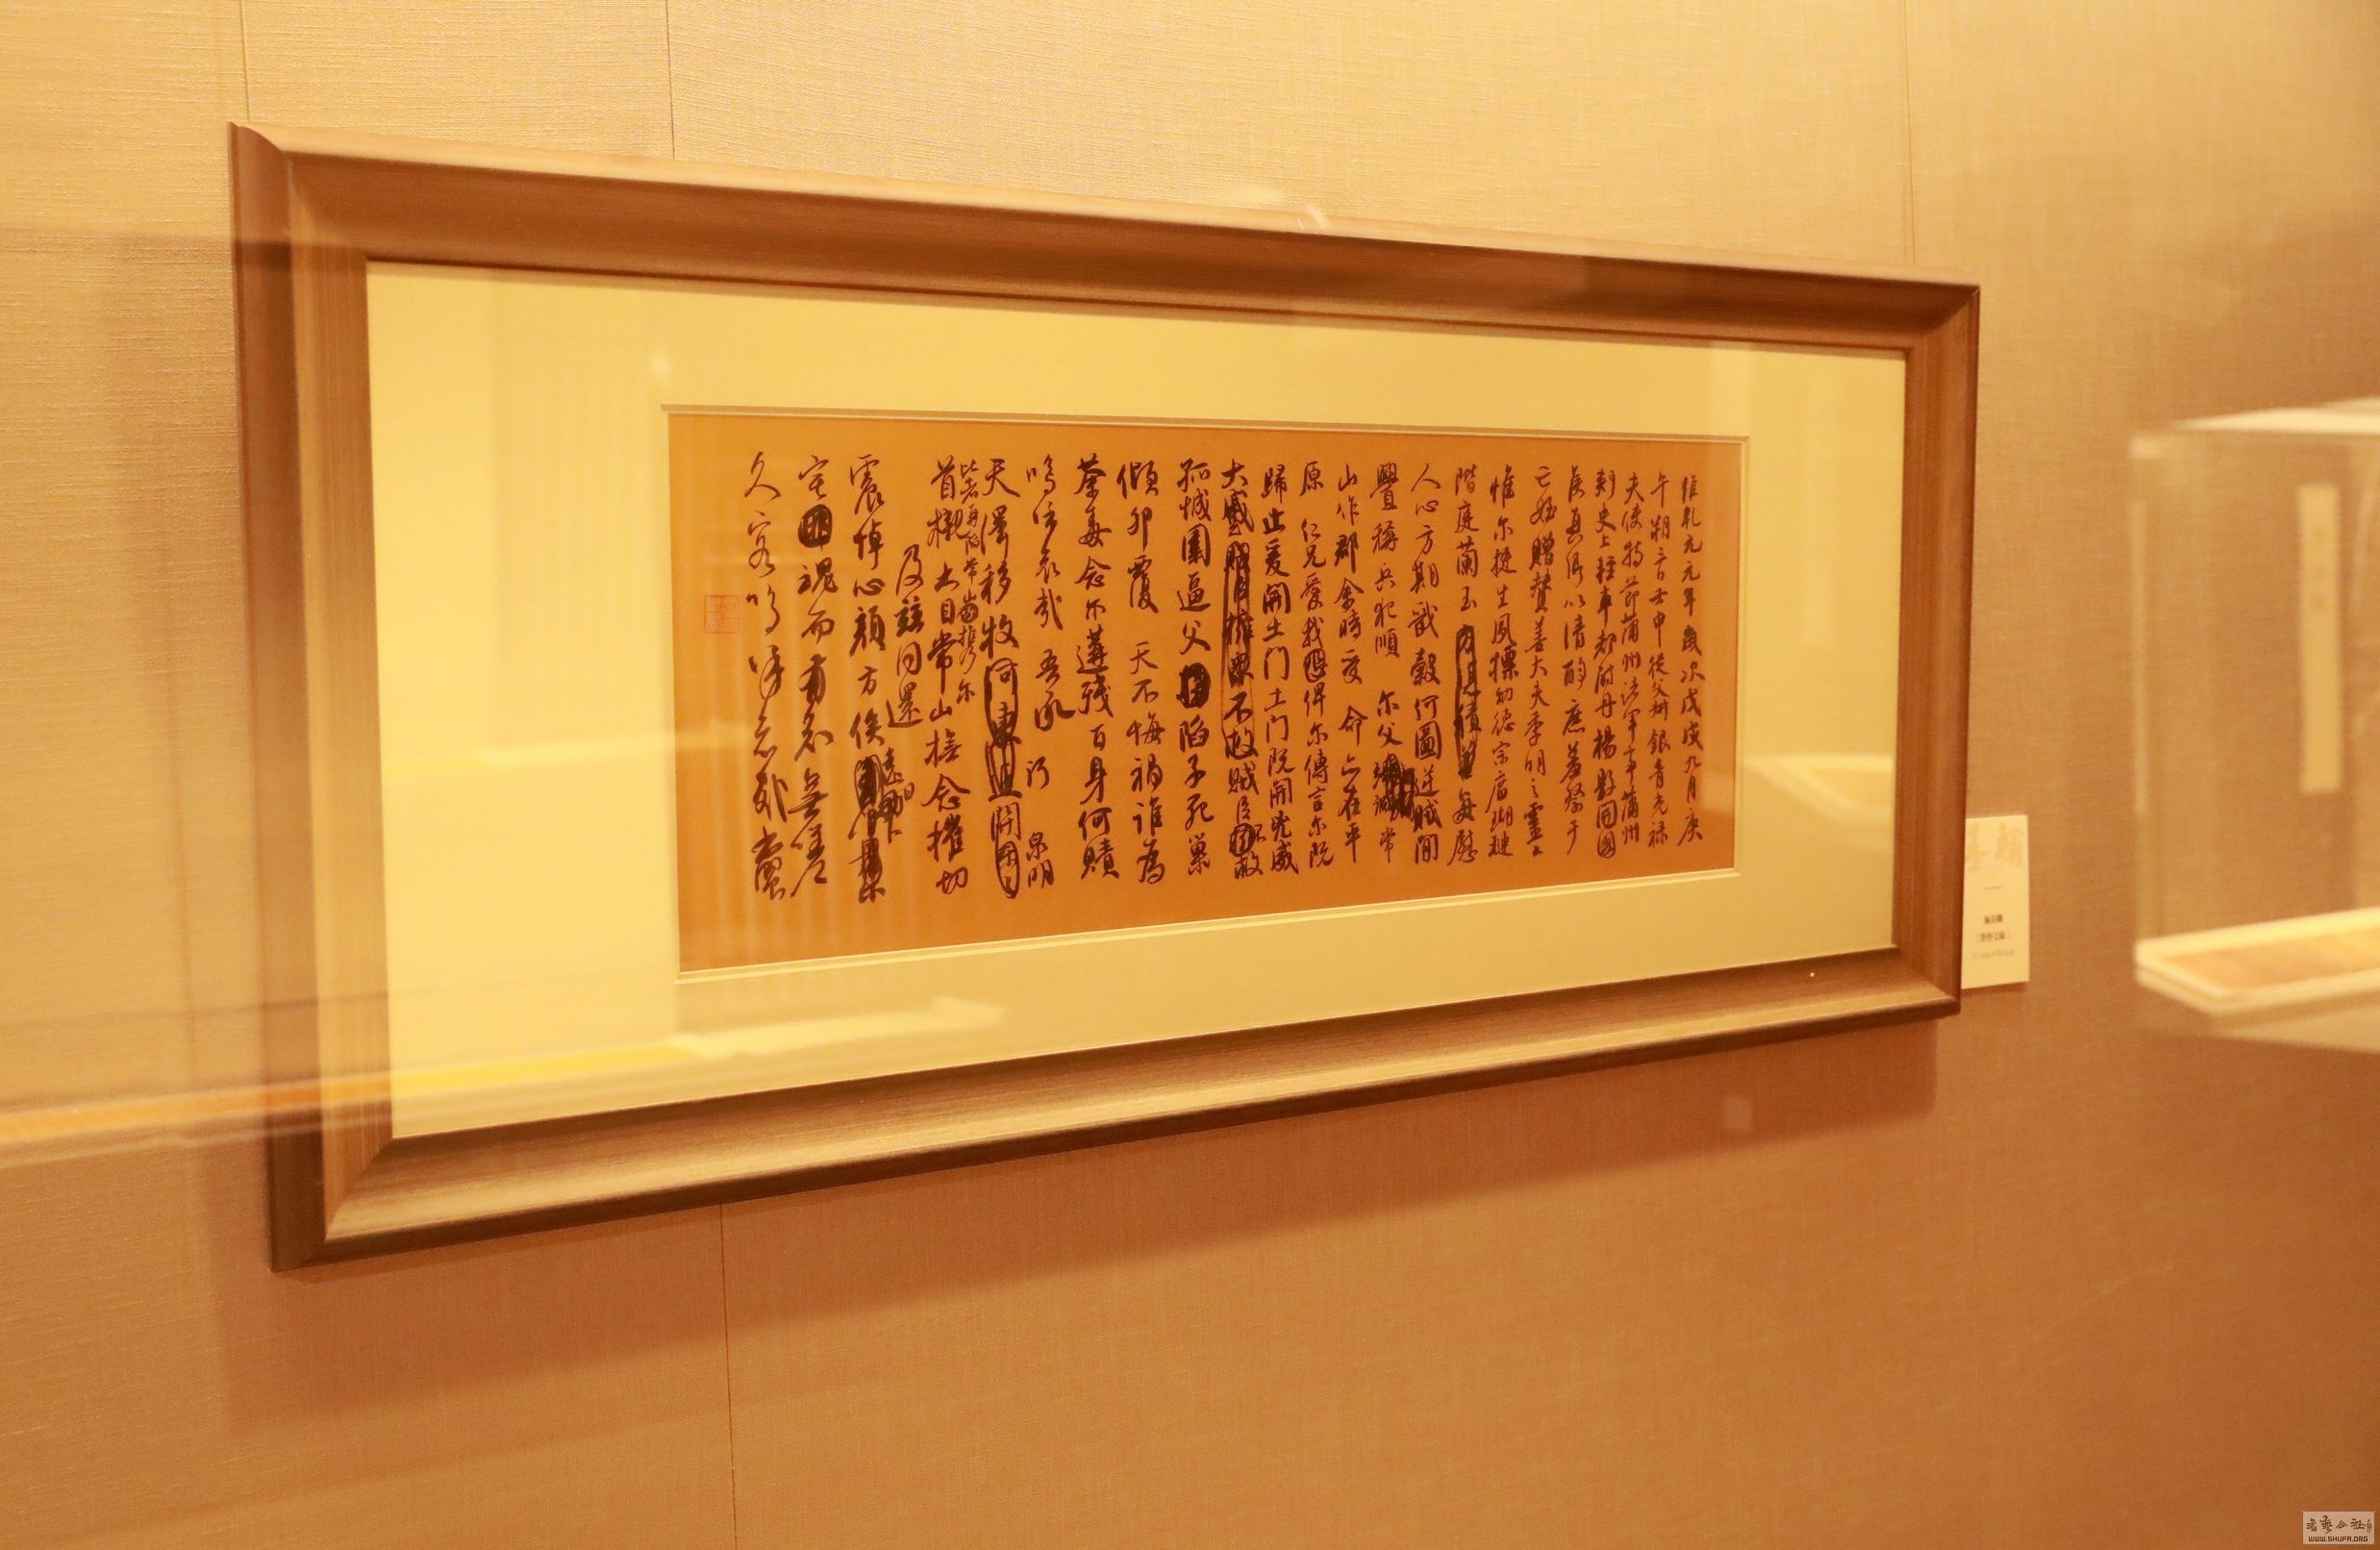 維乾元元年歲次戊戌九月庚
午朔三日壬申從父叔銀青光祿
夫使持節蒲州諸軍事蒲州
刺史上輕車都尉丹楊縣開國
侯真卿以清酌庶羞祭于
亡姪贈贊善大夫季明之靈曰
惟尔挺生夙標幼德宗廟瑚璉
階庭蘭玉每慰
人心方期戩穀何圖逆賊閒
釁稱兵犯順尔父竭誠常
山作郡余時受命亦在平
原仁兄愛我俾尔傳言尔既
歸止爰開土門土門既開凶威
大蹙賊臣擁眾不救賊臣不救
孤城圍逼父陷子死巢
傾卵覆天不悔禍誰為
荼毒念尔遘殘百身何贖
嗚呼哀哉吾承
泉明
天澤移牧河東近
比者再陷常山攜尔
首櫬及茲同還
撫念摧切
震悼心顏方俟遠日
宅魂而有知無嗟
久客嗚呼哀哉尚饗
WWW.SHUFA.ORG